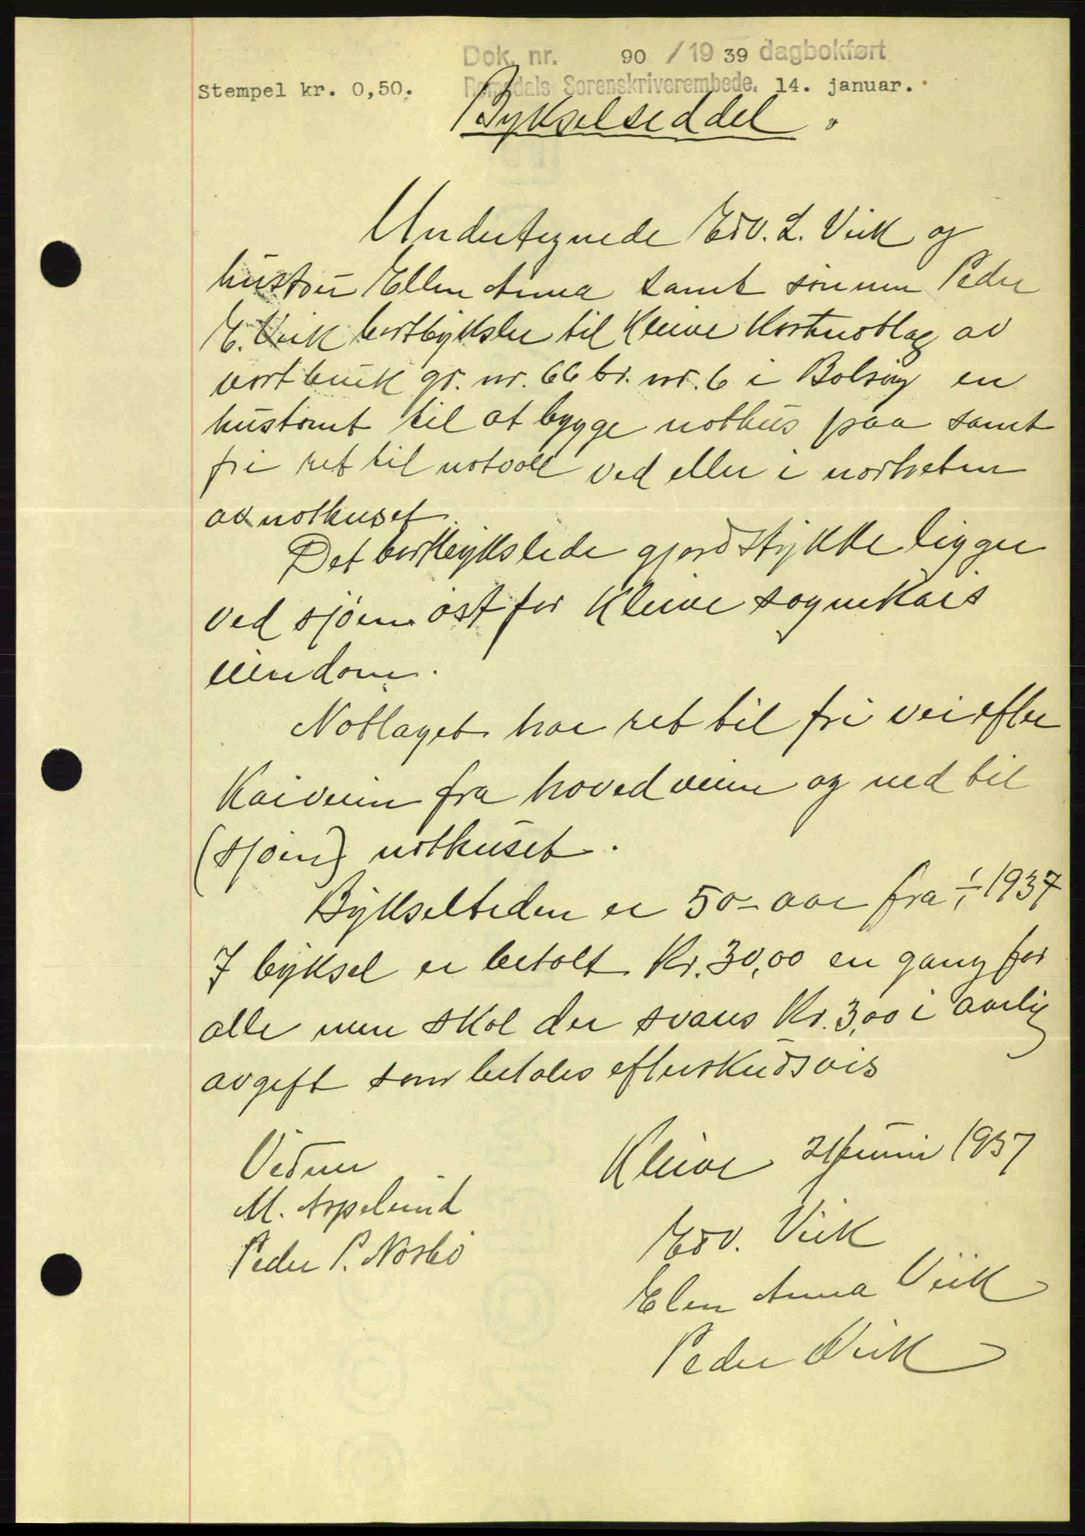 Dok. nr. 90 / 19 39 dagbokført
Stempel kr. 0,50. Romsdals Sorenskriverembede. 14. januar.
Bykselseddel.
Undertegnede Edv. L. Viik og
hustru Ellen Anna samt sønnen Peder
E. Viik bortbyksler til Kleive Kastenotlag av
vort bruk gr. nr. 66 br. nr. 6 i Bolsøy en
hustomt til at bygge nothus paa samt
fri ret til notvoll ved eller i nærheten
av nothuset.
Det bortbykslede gjordstykke ligger
ved sjøen øst for Kleive sognekais
eiendom.
Notlaget har ret til fri vei efter
Kaiveien fra hovedveien og ned til
(sjøen) nothuset.
Bykseltiden er 50 - aar fra 1/1 1937
I byksel er betalt Kr. 30,00 en gang for
alle men skal der svares Kr. 3,00 i aarlig
avgift som betales efterskudsvis
Vidner
Kleive 21 juni 1937
M. Aspelund
Peder P. Nosbø
Edv. Viik
Elen Anna Viik
Peder Viik